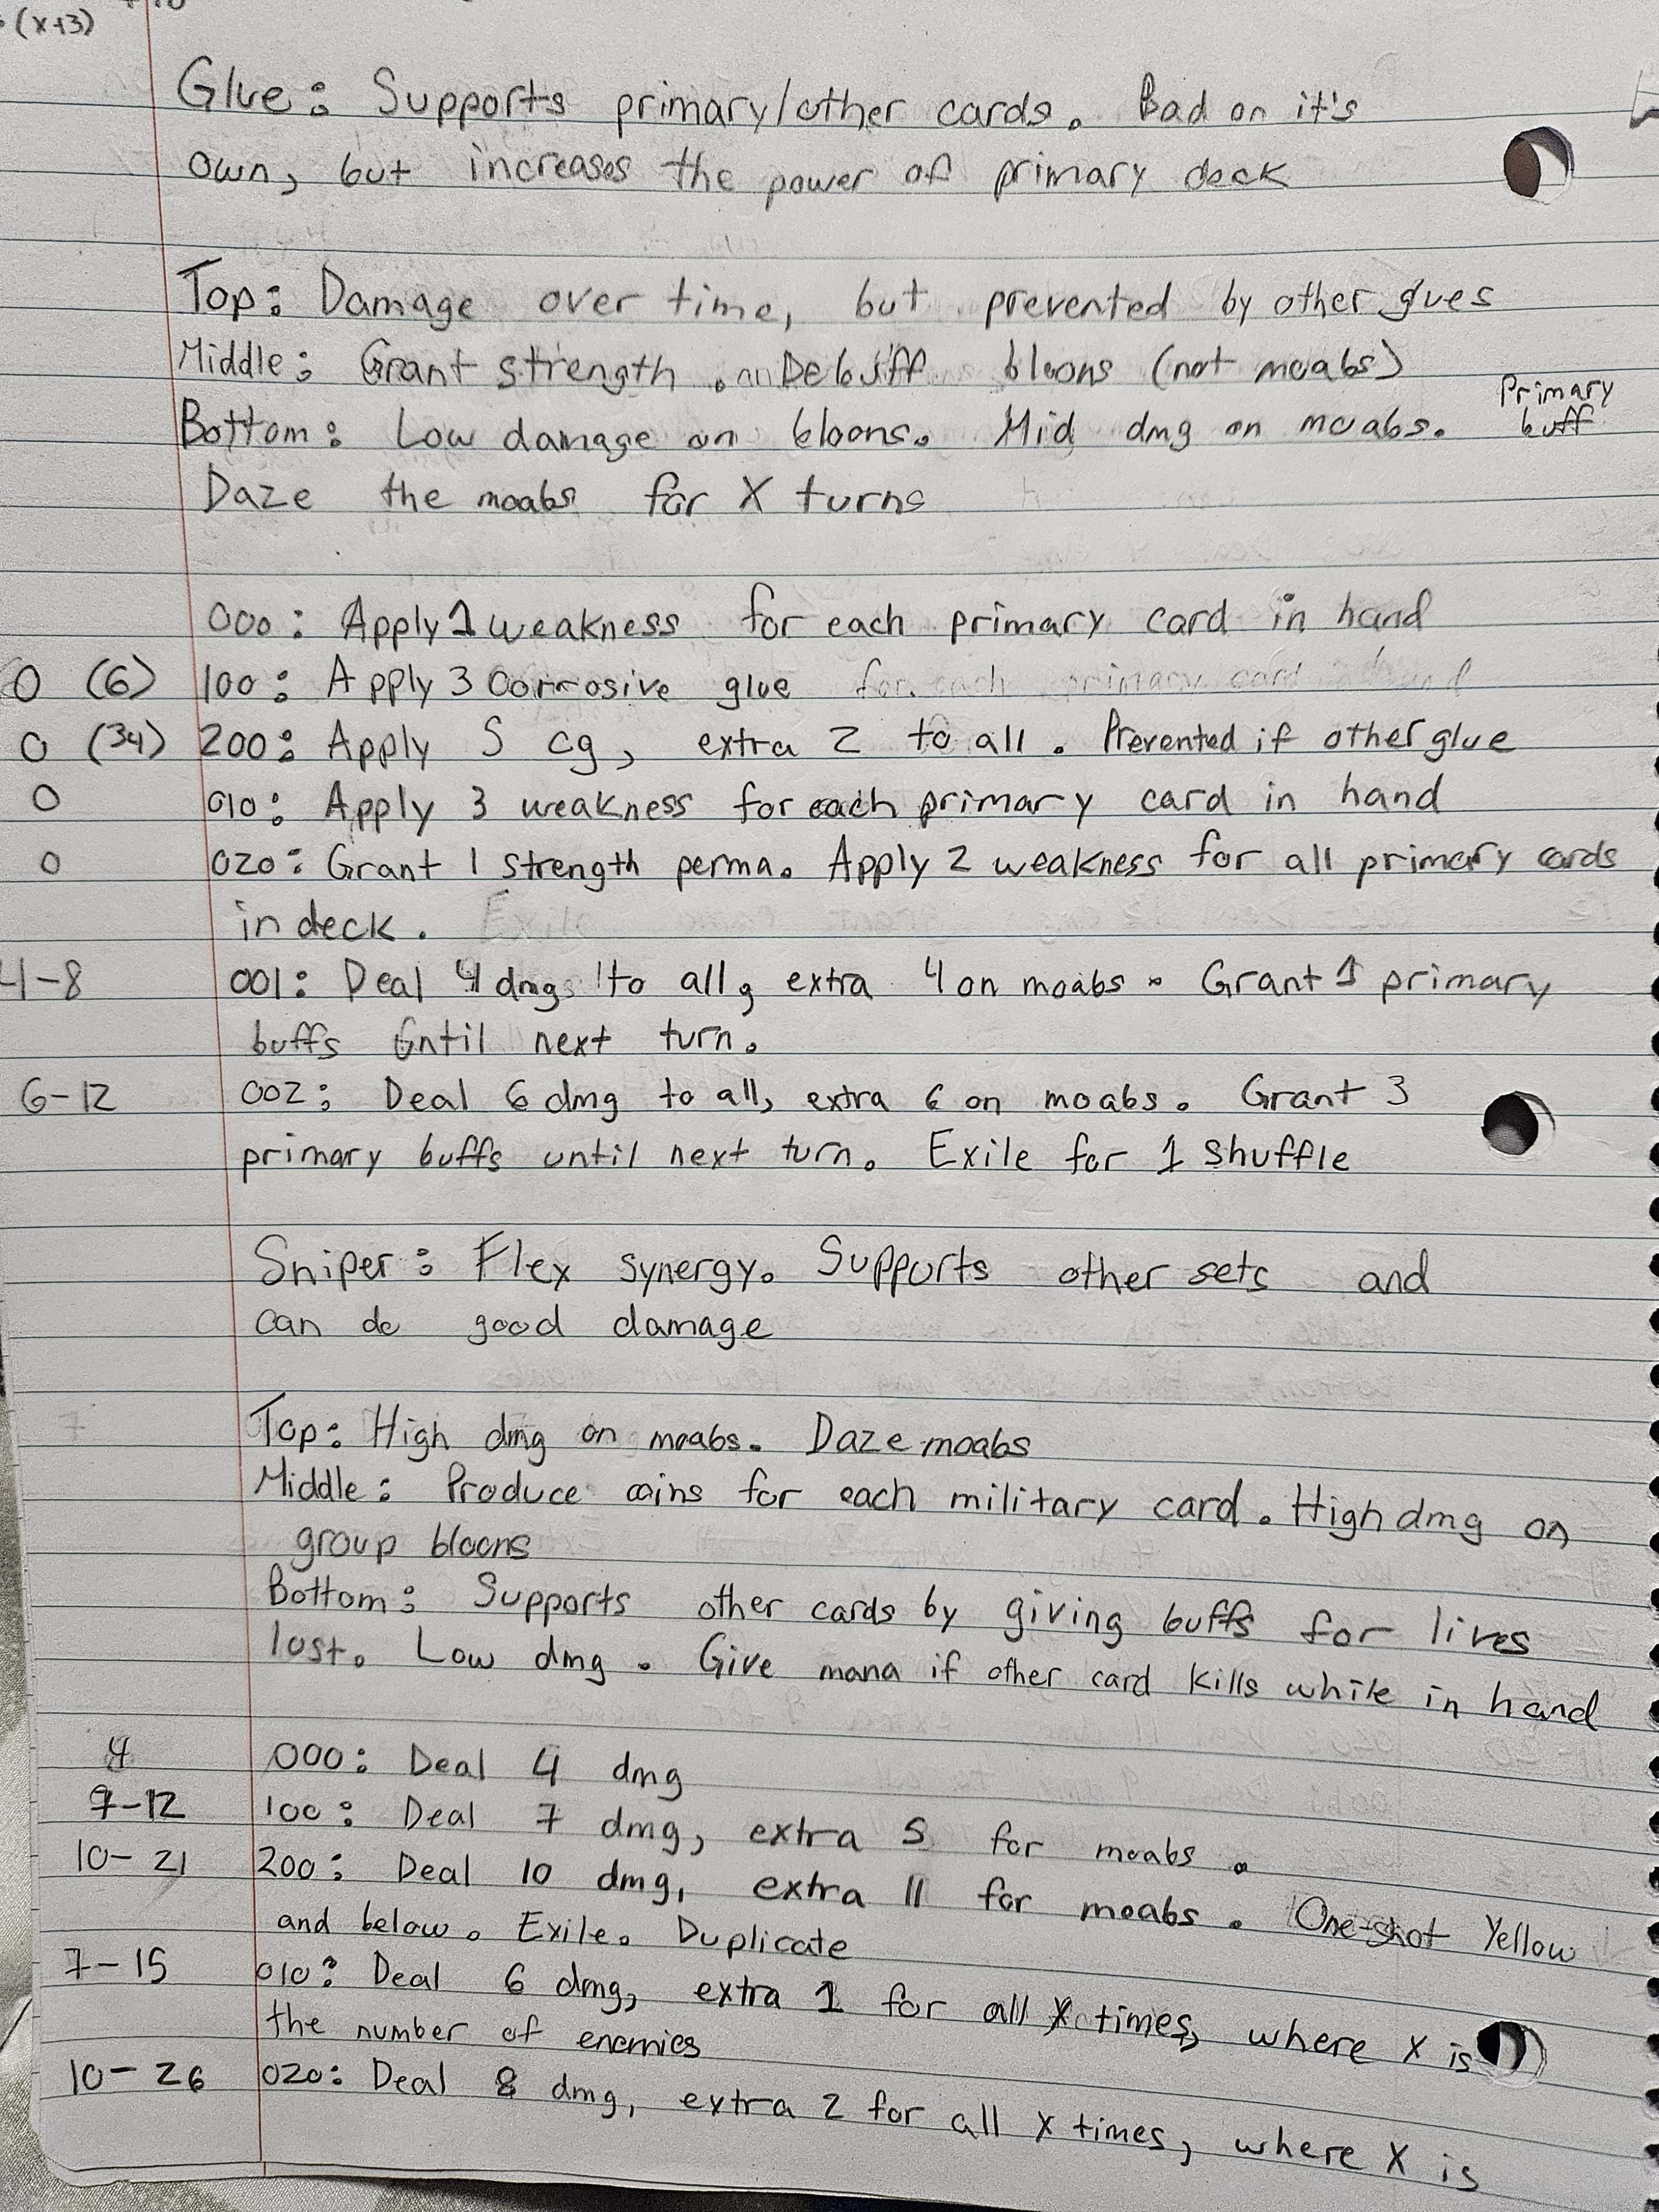 (x+3)
Glue: Supports primary/other cards. Bad on it's
own, but increases the power of primary deck
Top: Damage over time, but prevented by other glues
Middle: Grant strength. Debuff bloons (not moabs)
Primary
buff
Bottom: Low damage on bloons. Mid dmg on moabs.
Daze the moabs for X turns
000: Apply 1 weakness for each primary card in hand
0 (6) 100: Apply 3 Corrosive glue
0 (34) 200: Apply 5 cg, extra 2 to all. Prevented if other glue
0 010: Apply 3 weakness for each primary card in hand
0 020: Grant 1 strength perma. Apply 2 weakness for all primary cards
in deck.
4-8 001: Deal 4 dmg to all, extra 4 on moabs. Grant 1 primary
buffs until next turn.
6-12 002: Deal 6 dmg to all, extra 6 on moabs. Grant 3
primary buffs until next turn. Exile for 1 shuffle
Sniper: Flex synergy. Supports other sets and
can do good damage
Top: High dmg on moabs. Daze moabs
Middle: Produce coins for each military card. High dmg on
group bloons
Bottom: Supports other cards by giving buffs for lives
lost. Low dmg. Give mana if other card kills while in hand
4 000: Deal 4 dmg
7-12 100: Deal 7 dmg, extra 5 for moabs.
10-21 200: Deal 10 dmg, extra 11 for moabs. One-shot Yellow
and below. Exile. Duplicate
7-15 010: Deal 6 dmg, extra 1 for all X times, where X is
the number of enemies
10-26 020: Deal 8 dmg, extra 2 for all X times, where X is